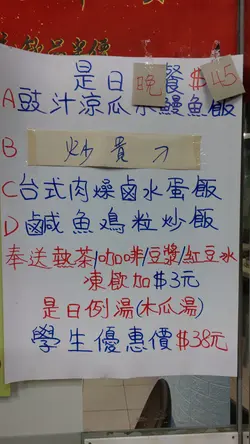 是日晚餐 $45
A豉汁涼瓜鰻魚飯
B 炒貴刁
C台式肉燥鹵水蛋飯
D鹹魚鳮粒炒飯
奉送熱茶/咖啡/豆漿/紅豆冰
凍飲加$3元
是日例湯(木瓜湯)
學生優惠價$38元